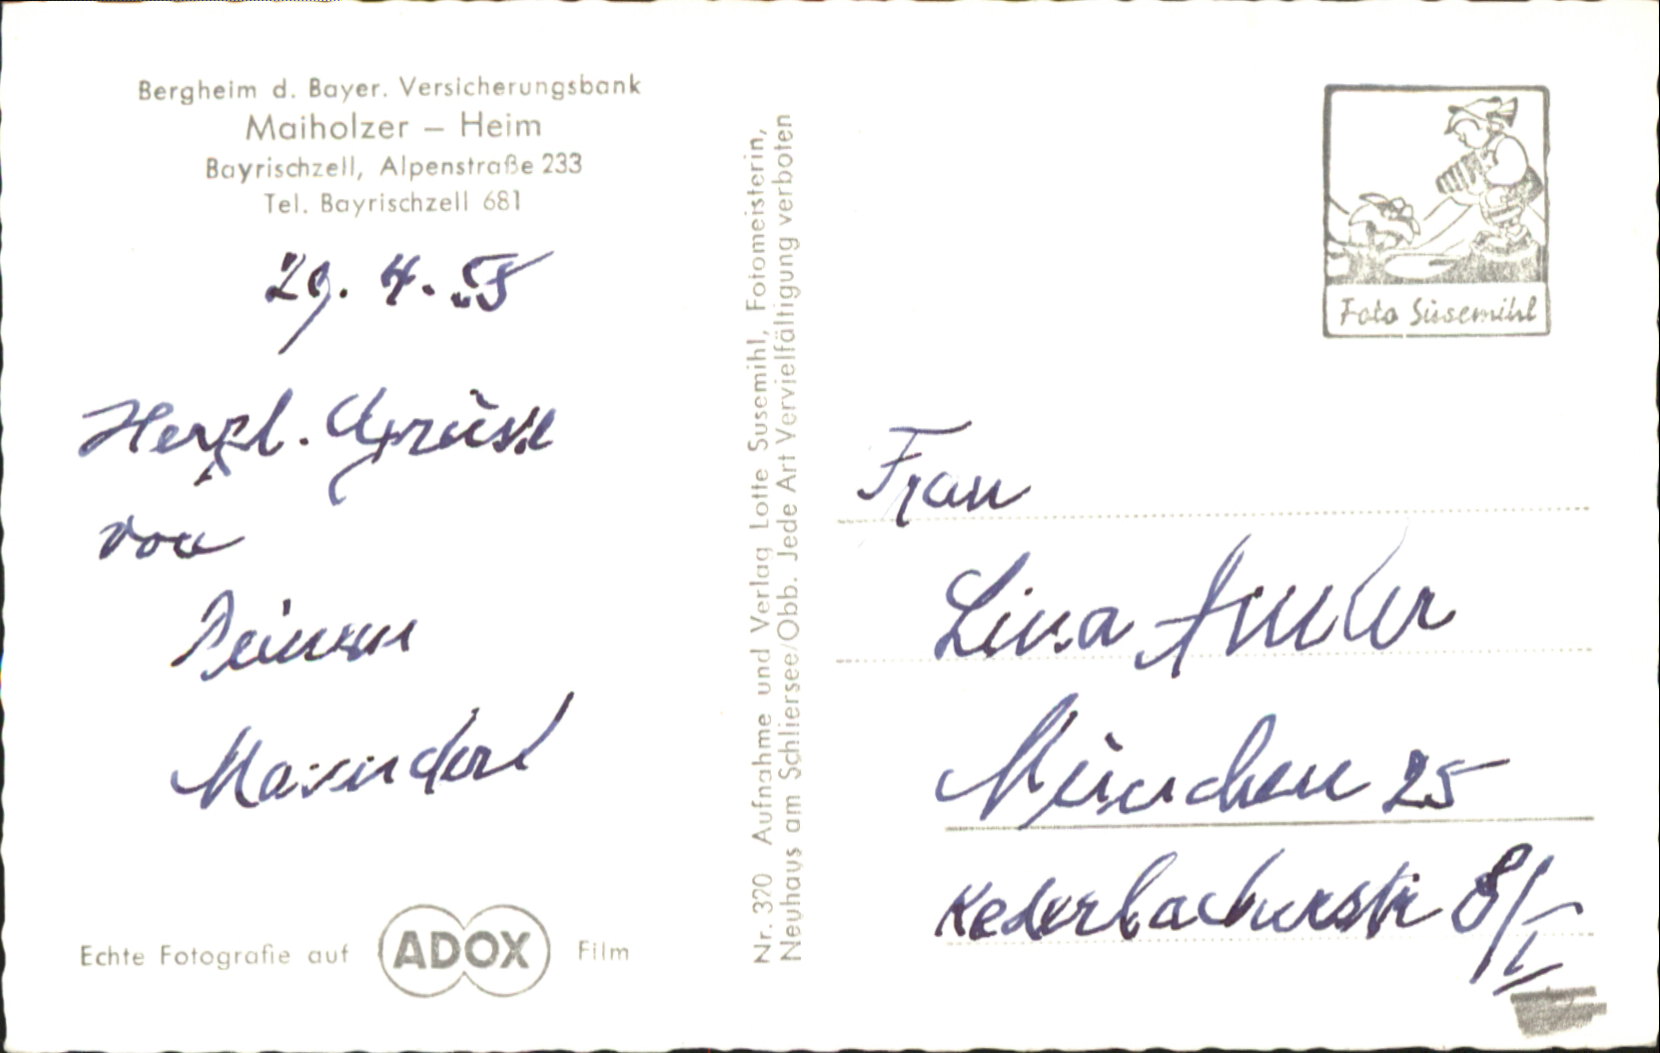 Bergheim d. Bayer. Versicherungsbank
Maiholzer – Heim
Bayrischzell, Alpenstraße 233
Tel. Bayrischzell 681
29. 4. 55
Herzl. Grüsse
von
Echte Fotografie auf ADOX Film
Nr. 320 Aufnahme und Verlag Lotte Susemihl, Fotomeisterin,
Neuhaus am Schliersee/Obb. Jede Art Vervielfältigung verboten
Foto Susemihl
Frau
Lina
München 25
Kederbacherstr 8/I